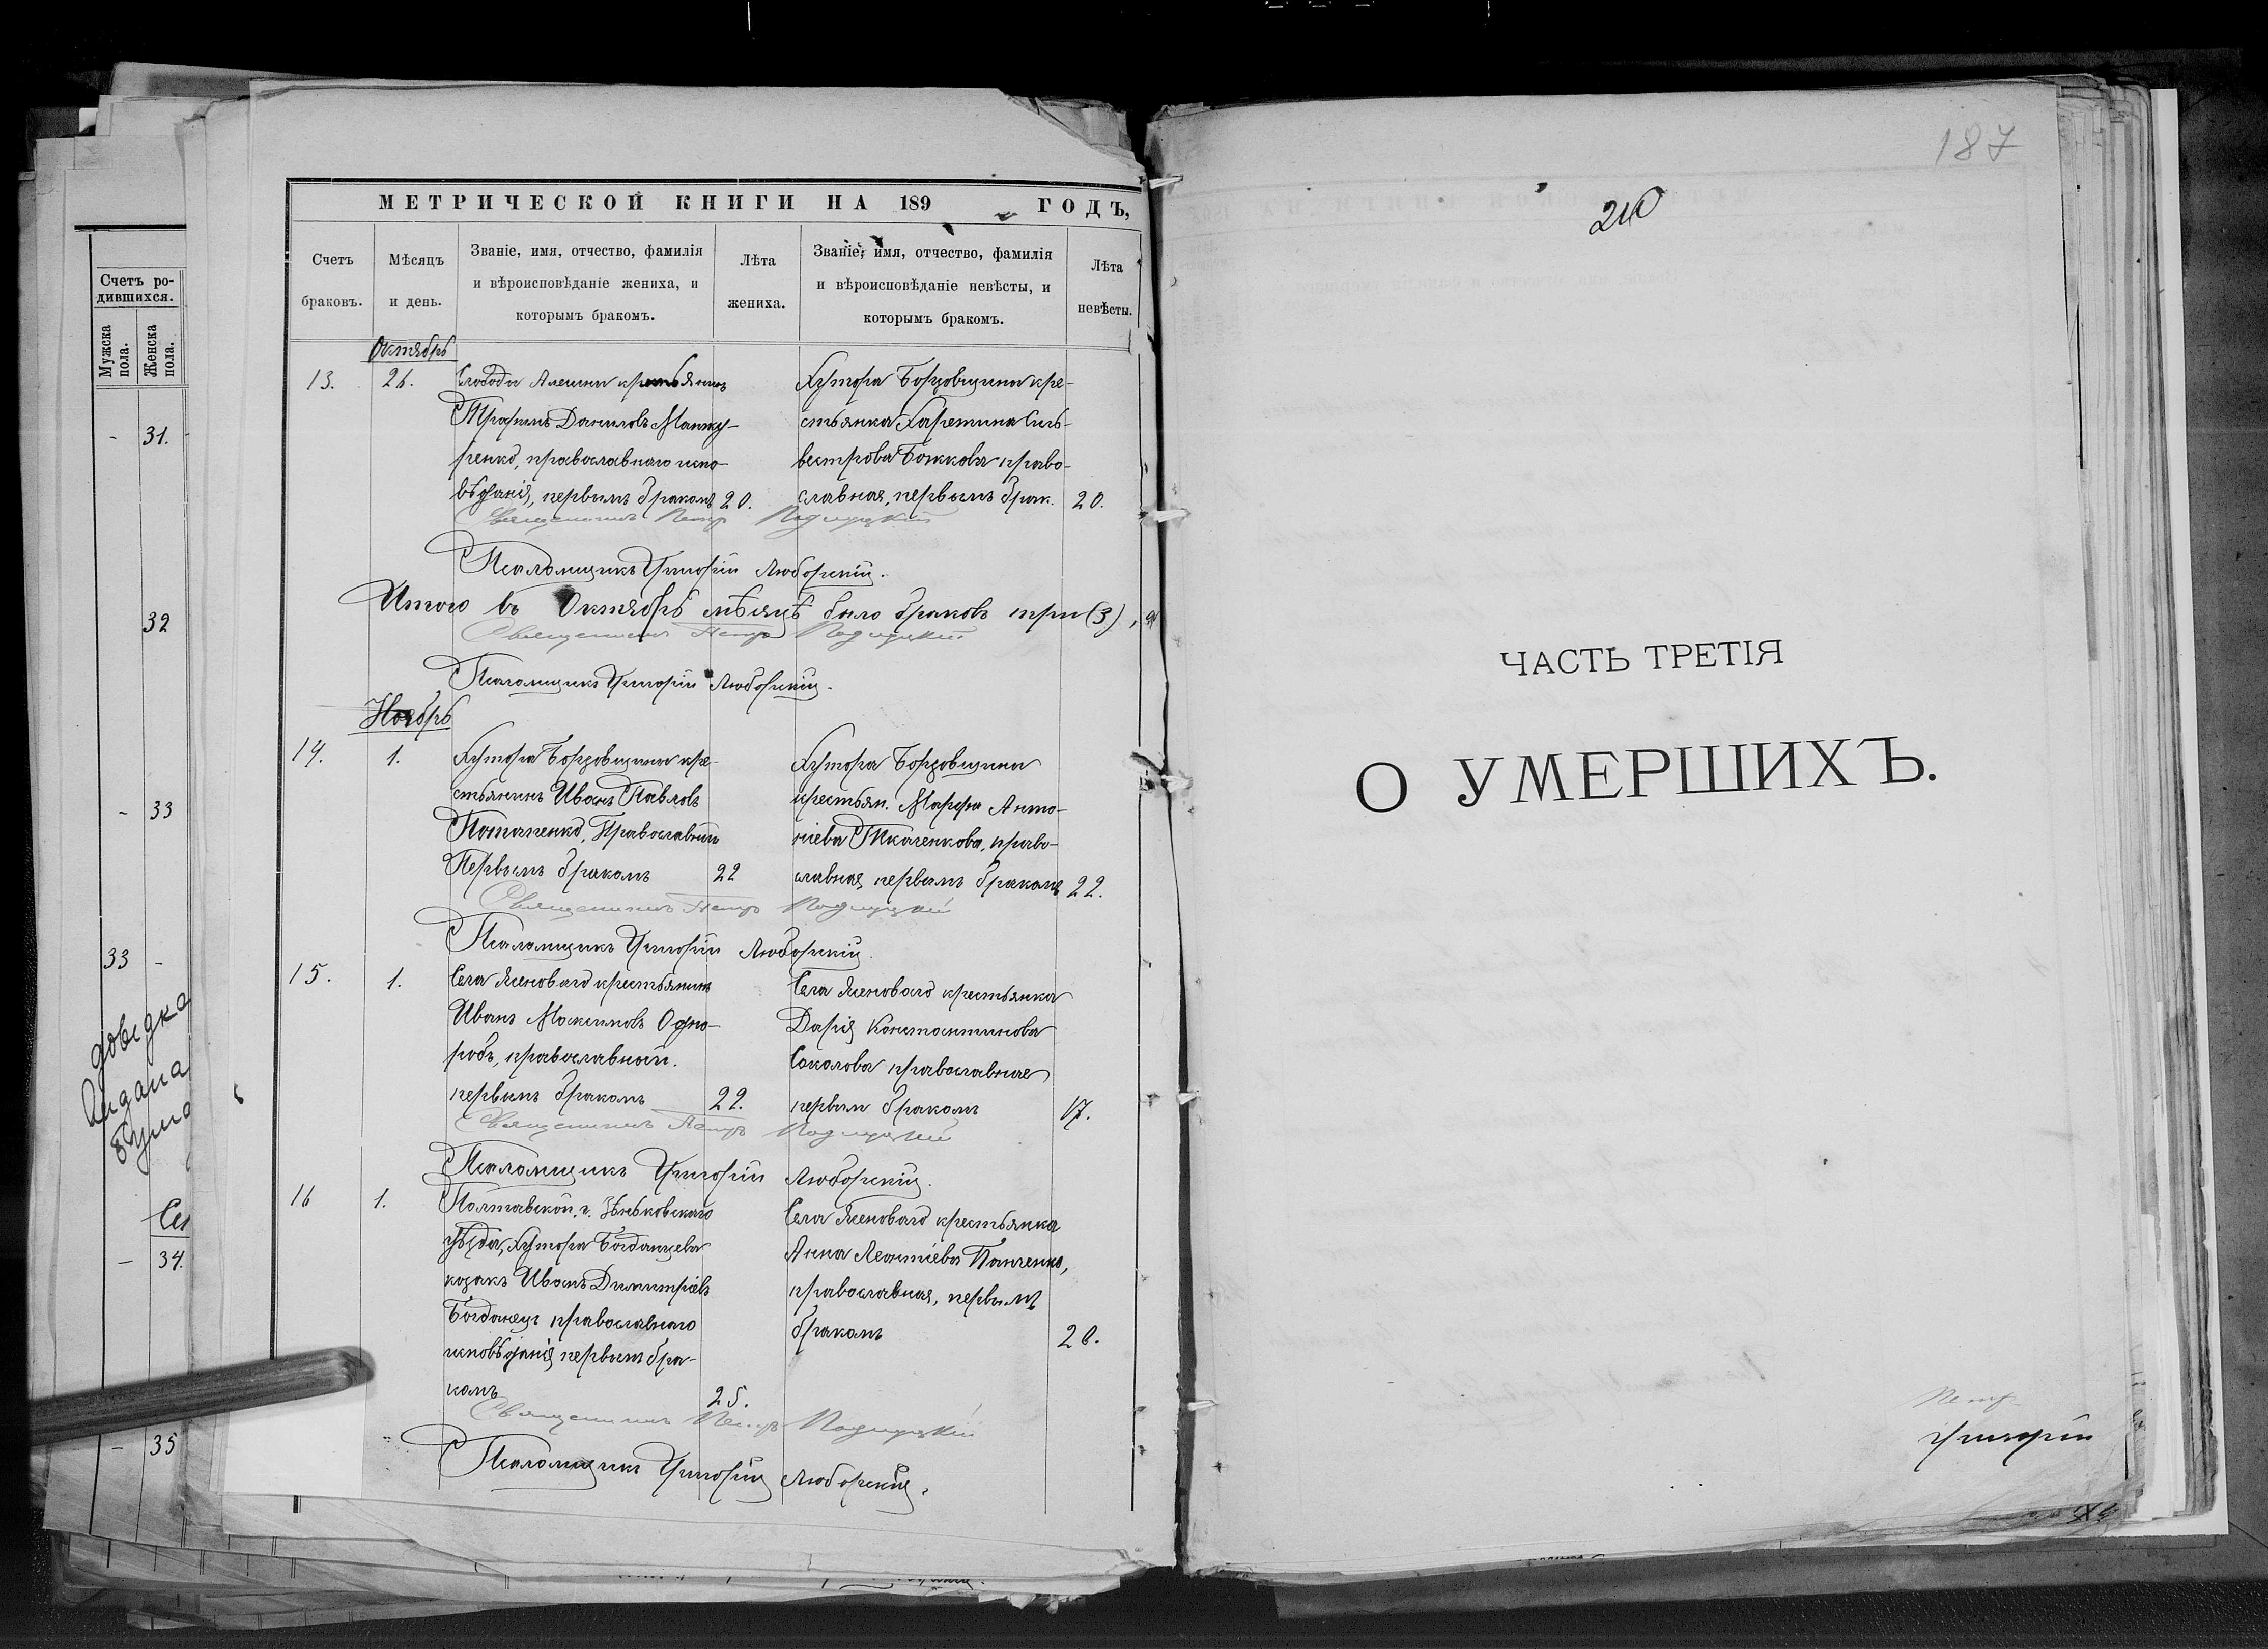 МЕТРИЧЕСКОЙ КНИГИ НА 189 ГОДЪ,
Счетъ браковъ.
Мѣсяцъ и день.
Званіе, имя, отчество, фамилія
и вѣроисповѣданіе жениха, и
которымъ бракомъ.
Лѣта жениха.
Званіе, имя, отчество, фамилія
и вѣроисповѣданіе невѣсты, и
которымъ бракомъ.
Лѣта невѣсты.
Октябрь
13. 26.
Слободы Алешни крестьянинъ
Даниловъ
ренко, православнаго испо-
вѣданія, первымъ бракомъ 20.
Хутора Борзовщина кре-
стьянка Харитина Силь-
вестрова Божкова право-
славная, первымъ брак. 20.
Священникъ Петръ
Псаломщикъ Григорій Любарскій.
Итого въ Октябрѣ мѣсяцѣ было браковъ три (3),
Священникъ Петръ
Псаломщикъ Григорій Любарскій.
Ноябрь
14. 1.
Хутора Борзовщина кре-
стьянинъ Иванъ Павловъ
Потапенко, Православный
Первымъ бракомъ 22
Хутора Борзовщина
крестьян. Марфа Анто-
ніева Ткаченкова, право-
славная, первымъ бракомъ 22.
Священникъ Петръ
Псаломщикъ Григорій Любарскій.
15. 1.
Села Ясеноваго крестьянинъ
Иванъ Максимовъ Одно-
робъ, православный.
первымъ бракомъ 22.
Села Ясеноваго крестьянка
Дарія Константинова
Соколова православная
первым бракомъ 17.
Священникъ Петръ
Псаломщикъ Григорій Любарскій.
16 1.
Полтавской г. Зѣньковскаго
уѣзда, Хутора Богданцева
козакъ Иванъ Димитріевъ
Богданецъ православнаго
исповѣданія первым бра-
комъ 25.
Села Ясеноваго крестьянка
Анна Леонтіева Панченко,
православная, первымъ
бракомъ 20.
Священникъ Петръ
Псаломщикъ Григорій Любарскій.
Счетъ ро-
дившихся.
Мужска пола.
Женска пола.
- 31.
32
- 33
33 -
довідка
видана
- 34.
- 35
187
210
ЧАСТЬ ТРЕТІЯ
О УМЕРШИХЪ.
Петр
Григорій